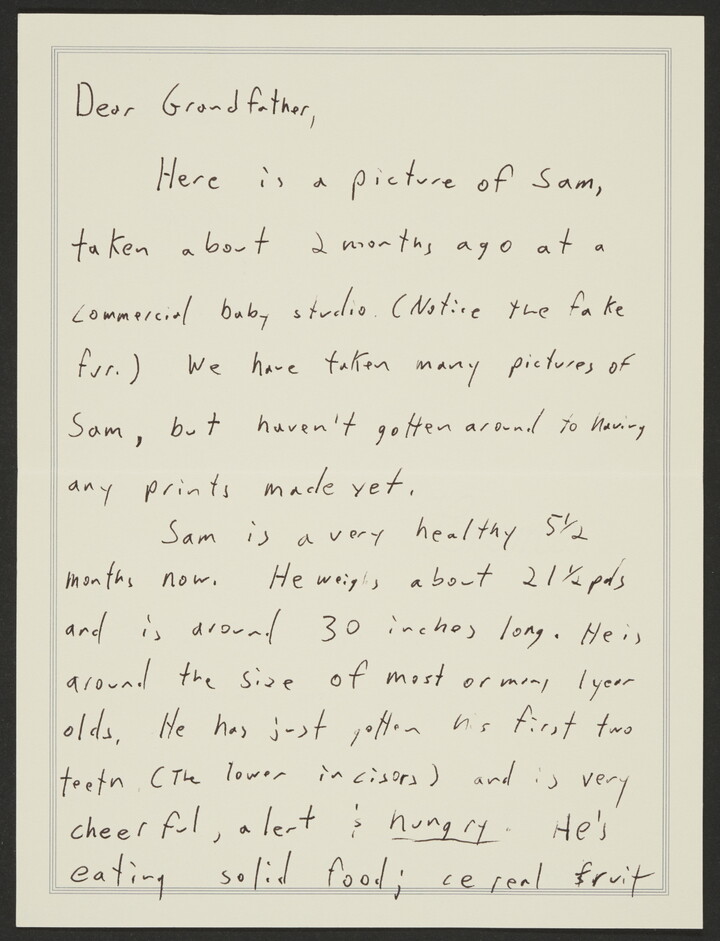 Dear Grandfather,
Here is a picture of Sam,
taken about 2 months ago at a
commercial baby studio. (Notice the fake
fur.) We have taken many pictures of
Sam, but haven't gotten around to having
any prints made yet.
Sam is a very healthy 5½
months now. He weighs about 21½ pds
and is around 30 inches long. He is
around the size of most or many 1 year
olds. He has just gotten his first two
teeth (The lower incisors) and is very
cheerful, alert & hungry. He's
eating solid food; cereal fruit